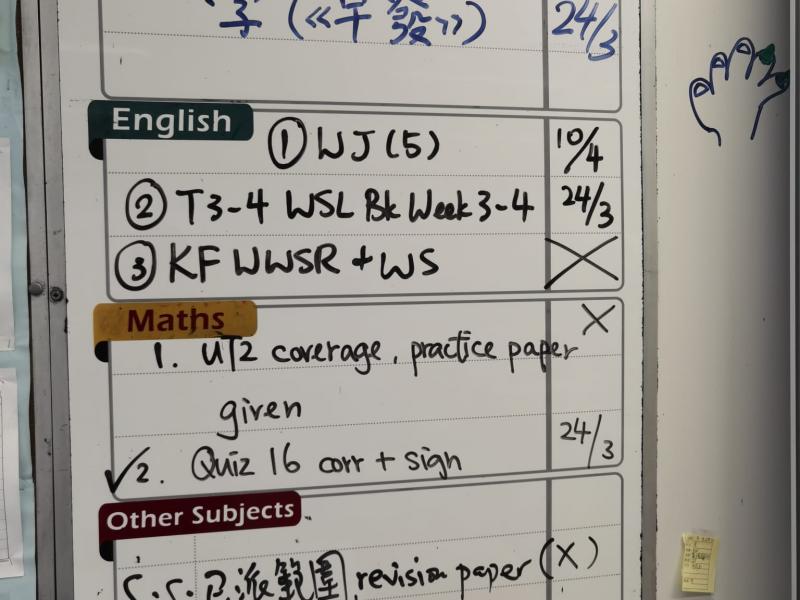 字 (《早發》) 24/3
English
① WJ (5) 10/4
② T3-4 WSL Bk Week 3-4 24/3
③ KF WWSR + WS X
Maths X
1. UT2 coverage, practice paper
given
✓2. Quiz 16 corr + sign 24/3
Other Subjects
C.S.已派範圍, revision paper (X)